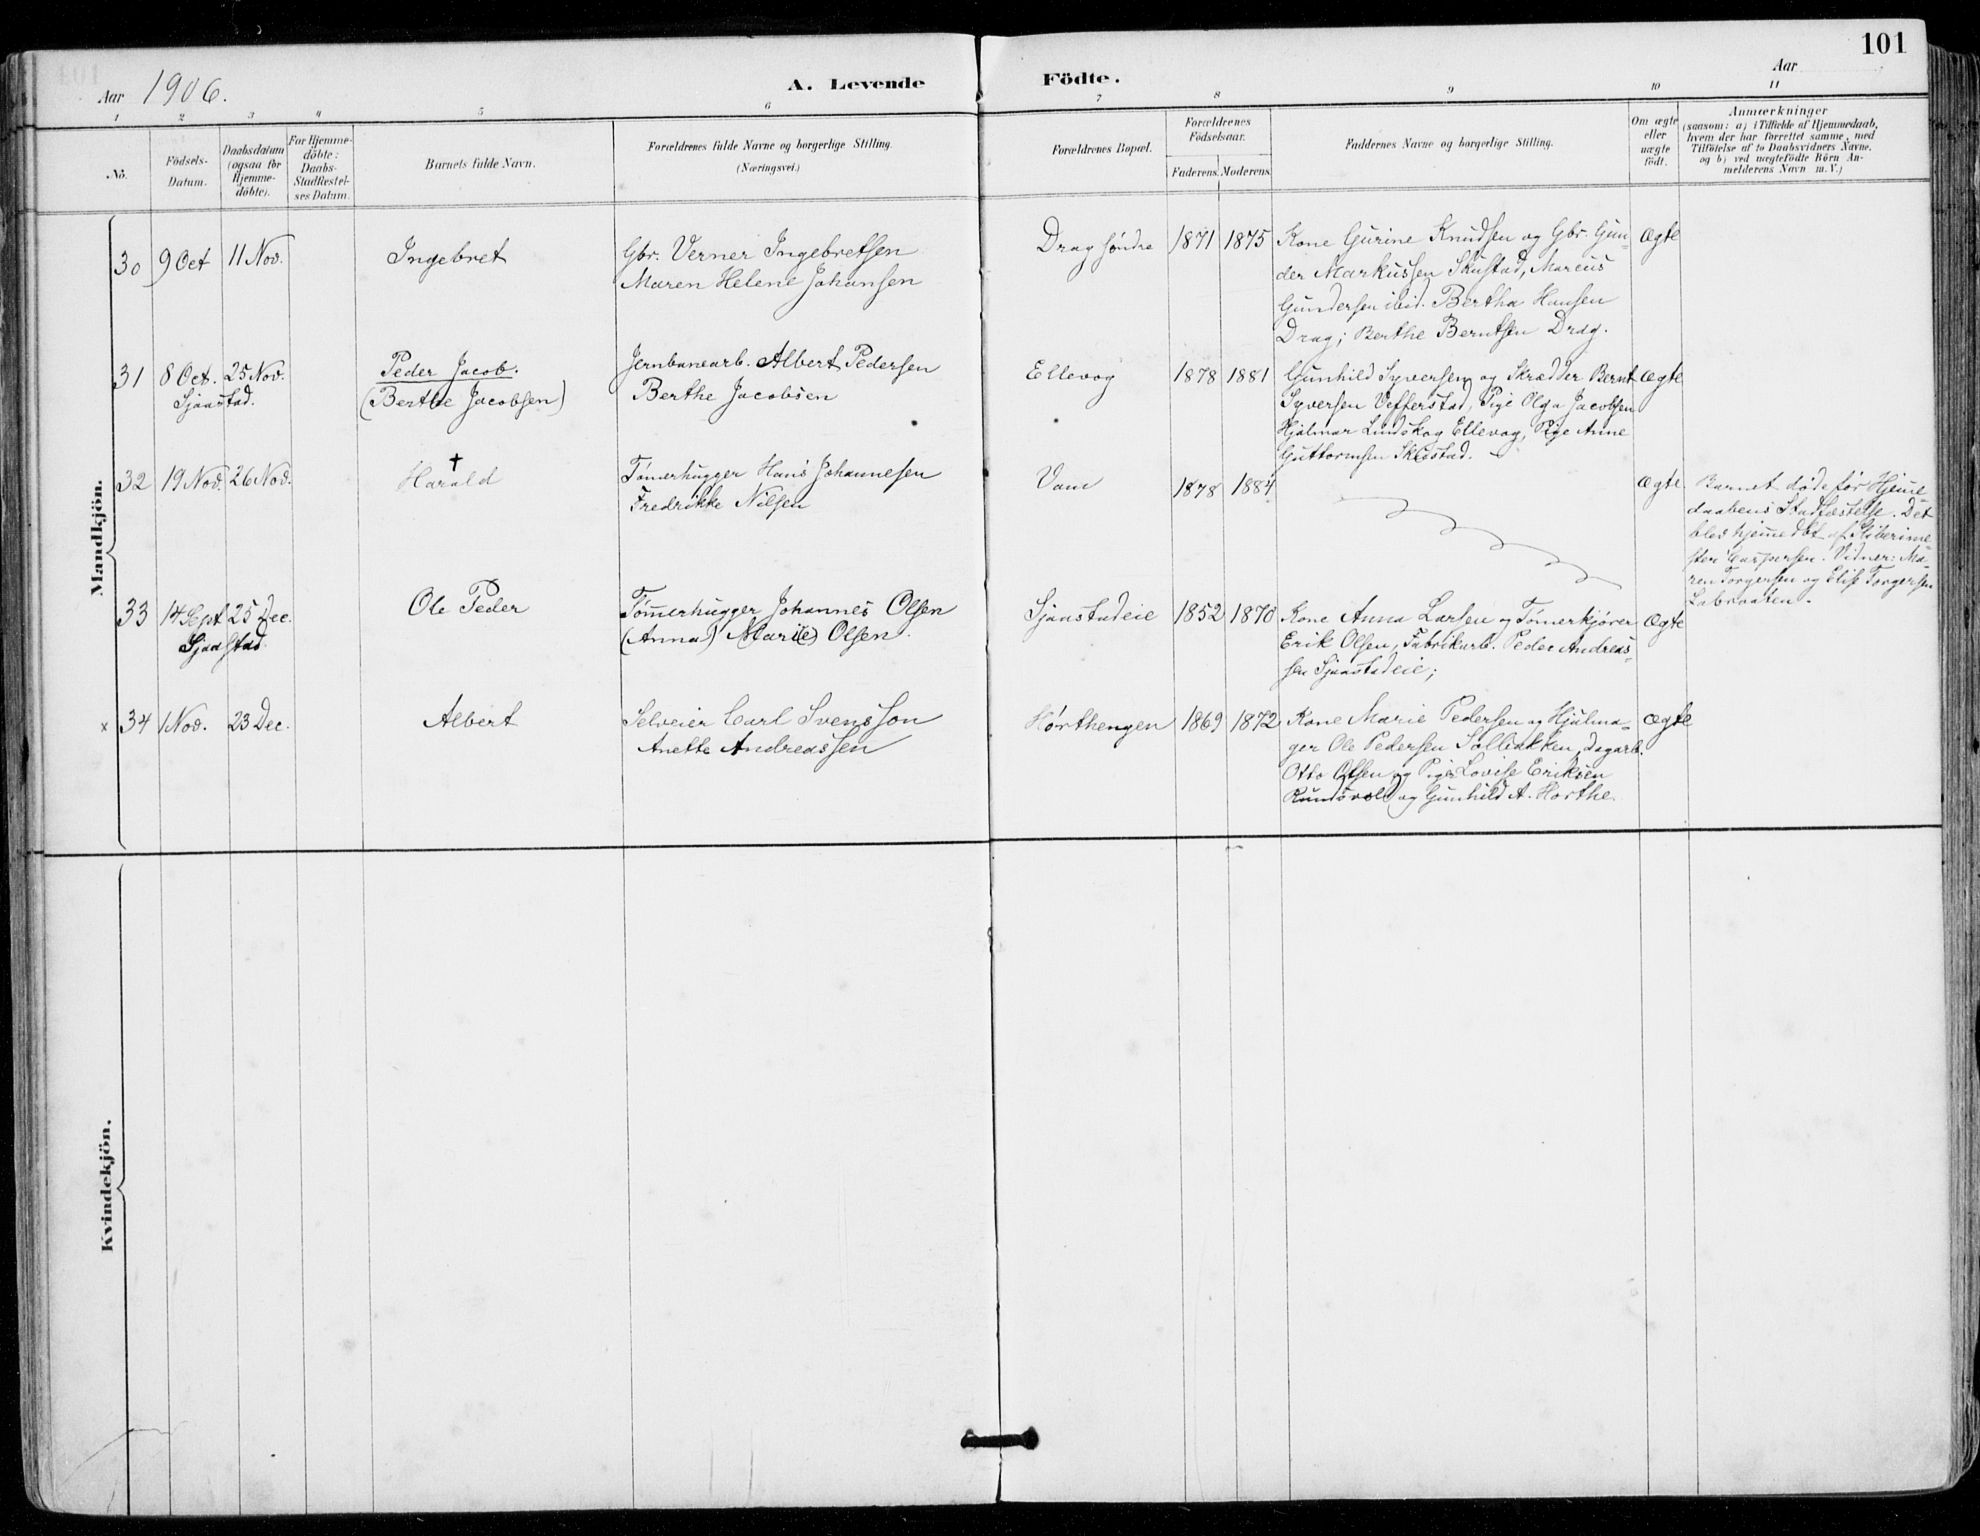 101
Aar 1906.
A. Levende Födte.
Aar
1 2 3 4 5 6 7 8 9 10 11
No.
Födsels-
Datum.
Daabsdatum
(ogsaa for
Hjemme-
döbte).
For Hjemme-
döbte:
Daabs-
Stadfæstel-
ses Datum.
Barnets fulde Navn.
Forældrenes fulde Navne og borgerlige Stilling.
(Næringsvei.)
Forældrenes Bopæl.
Forældrenes
Födselsaar.
Faderens. Moderens.
Faddernes Navne og borgerlige Stilling.
Om ægte
eller
uægte
födt.
Anmærkninger
(saasom: a) i Tilfælde af Hjemmedaab,
hvem der har forrettet samme, med
Tilföielse af to Daabsvidners Navne,
og b) ved uægtefödte Börn An-
melderens Navn m. V.)
Mandkjön.
30 9 Oct 11 Nov.
Ingebret
Gbr. Verner Ingebretsen
Maren Helene Johansen
Drag søndre 1871 1875
Kone Gurine Knudsen og Gbr. Gun-
der Markussen Skustad, Marcus
Gundersen ibid. Bertha Hansen
Drag; Berthe Berntsen Drag.
Ægte
31 8 Oct. 25 Nov.
Sjaastad.
Peder Jacob.
(Berthe Jacobsen)
Jernbanearb. Albert Pedersen
Berthe Jacobsen
Ellevog 1878 1881
Gunhild Syversen og Skrædder Bernt
Syversen Vefferstad, Pige Olga Jacobsen
Hjalmar Lindskog Ellevog, Pige Anne
Guttormsen
Ægte
32 19 Nov. 26 Nov.
†
Harald
Tømerhugger Hans Johannesen
Fredrikke Nilsen
Vam 1878 1884
Ægte
Barnet døde før Hjeme-
daabens Stadfæstelse. Det
blev hjemedbt af
Caspersen. Vidner: Ma-
ren Torgersen og Elise Torgersen
33 14 Sept 25 Dec.
Sjaastad.
Ole Peder
Tømerhugger Johannes Olsen
(Anna) Mari(e) Olsen.
Sjaastadeie 1852 1870
Kone Anna Larsen og Tømerkjører
Erik Olsen, Fabrikarb. Peder Andreas-
sen Sjaastadeie;
Ægte
x 34 1 Nov. 23 Dec.
Albert
Selveier Carl Svensson
Anette Andreassen
Hørthengen 1869 1872
Kone Marie Pedersen og Hjulma-
ger Ole Pedersen Solbakken, Dagarb.
Otto Olsen og Pige Lovise Eriksen
og Gunhild A. Horthe.
Ægte
Kvindekjön.